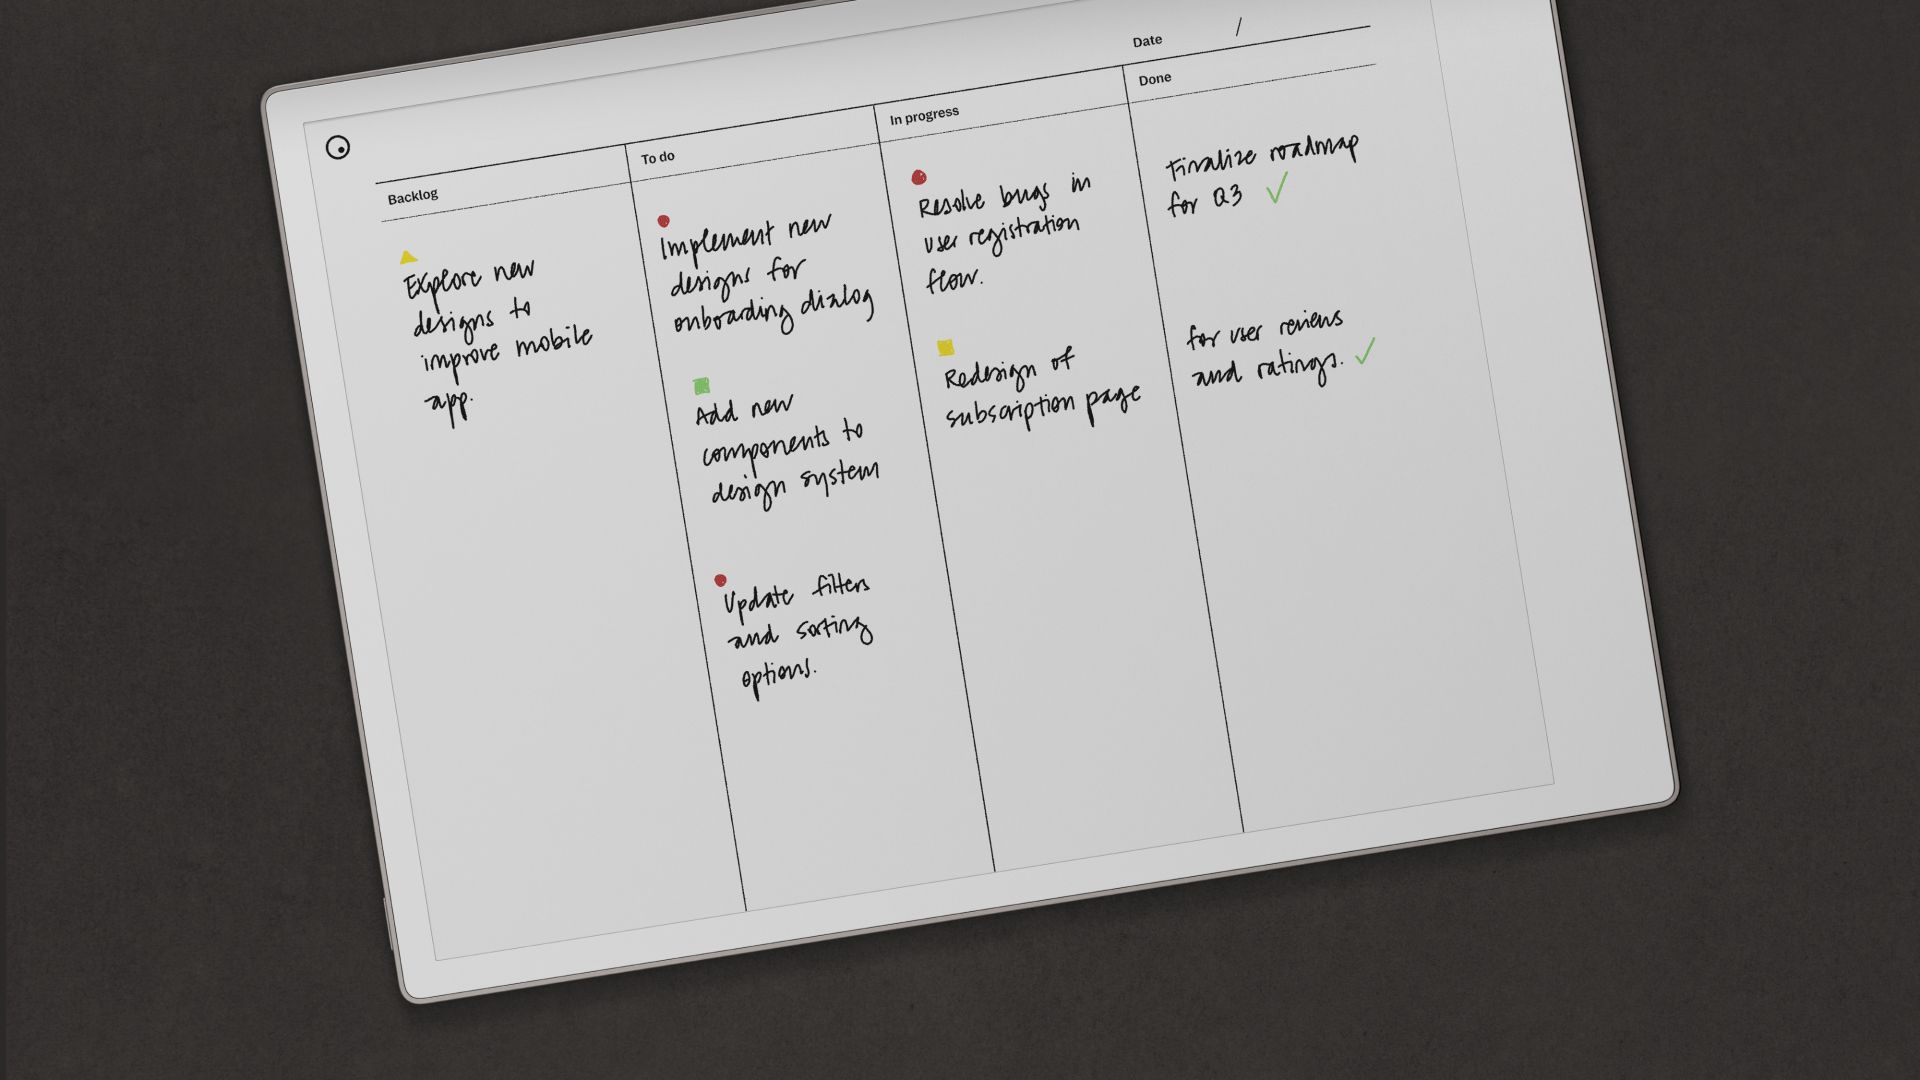 Date /
Backlog
To do
In progress
Done
Explore new
designs to
improve mobile
app.
Implement new
designs for
onboarding dialog
Add new
components to
design system
Update filters
and sorting
options.
Resolve bugs in
user registration
flow.
Redesign of
subscription page
Finalize roadmap
for Q3 ✓
for user reviews
and ratings. ✓